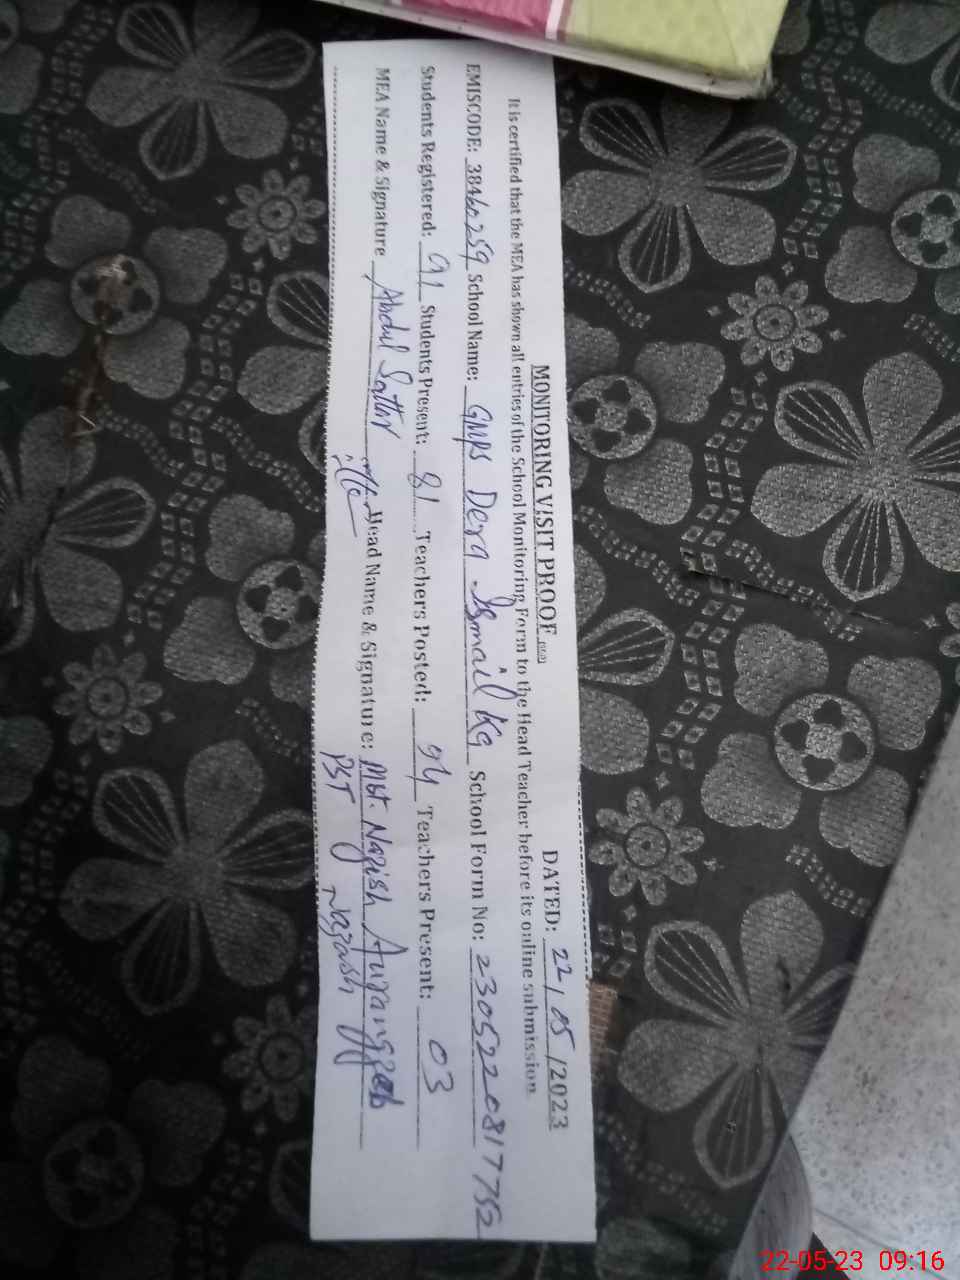 MONITORING VISIT PROOF DATED: 22/05/2023
It is certified that the MEA has shown all entries of the School Monitoring Form to the Head Teacher before its online submission.
EMISCODE: 38460259 School Name: GMPS Dera Ismail Kg School Form No: 2305220817752
Students Registered: 91 Students Present: 81 Teachers Posted: 04 Teachers Present: 03
MEA Name & Signature Abdul Sattar Head Name & Signature: Mst. Nazish Aurangzeb
PST Nazish
22-05-23 09:16